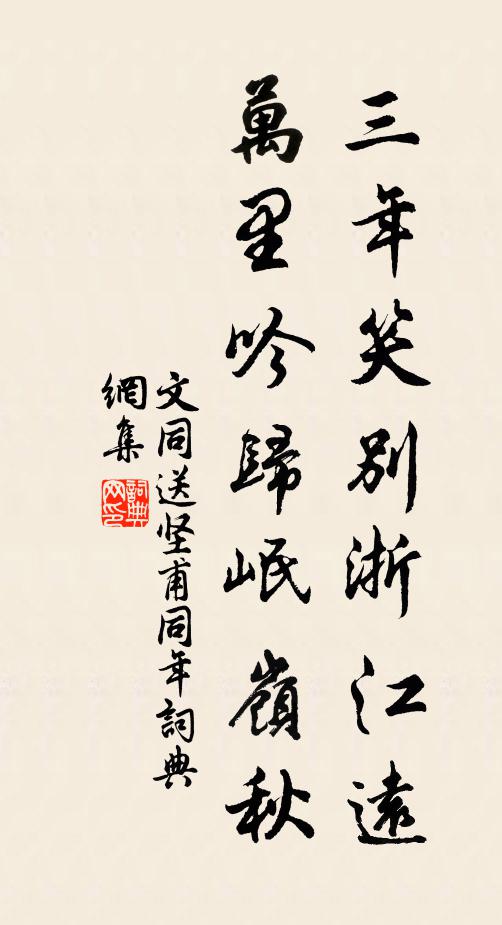 三年笑別浙江遠
萬里吟歸岷嶺秋
文同送坚甫同年詞典
網集
詞典
网印